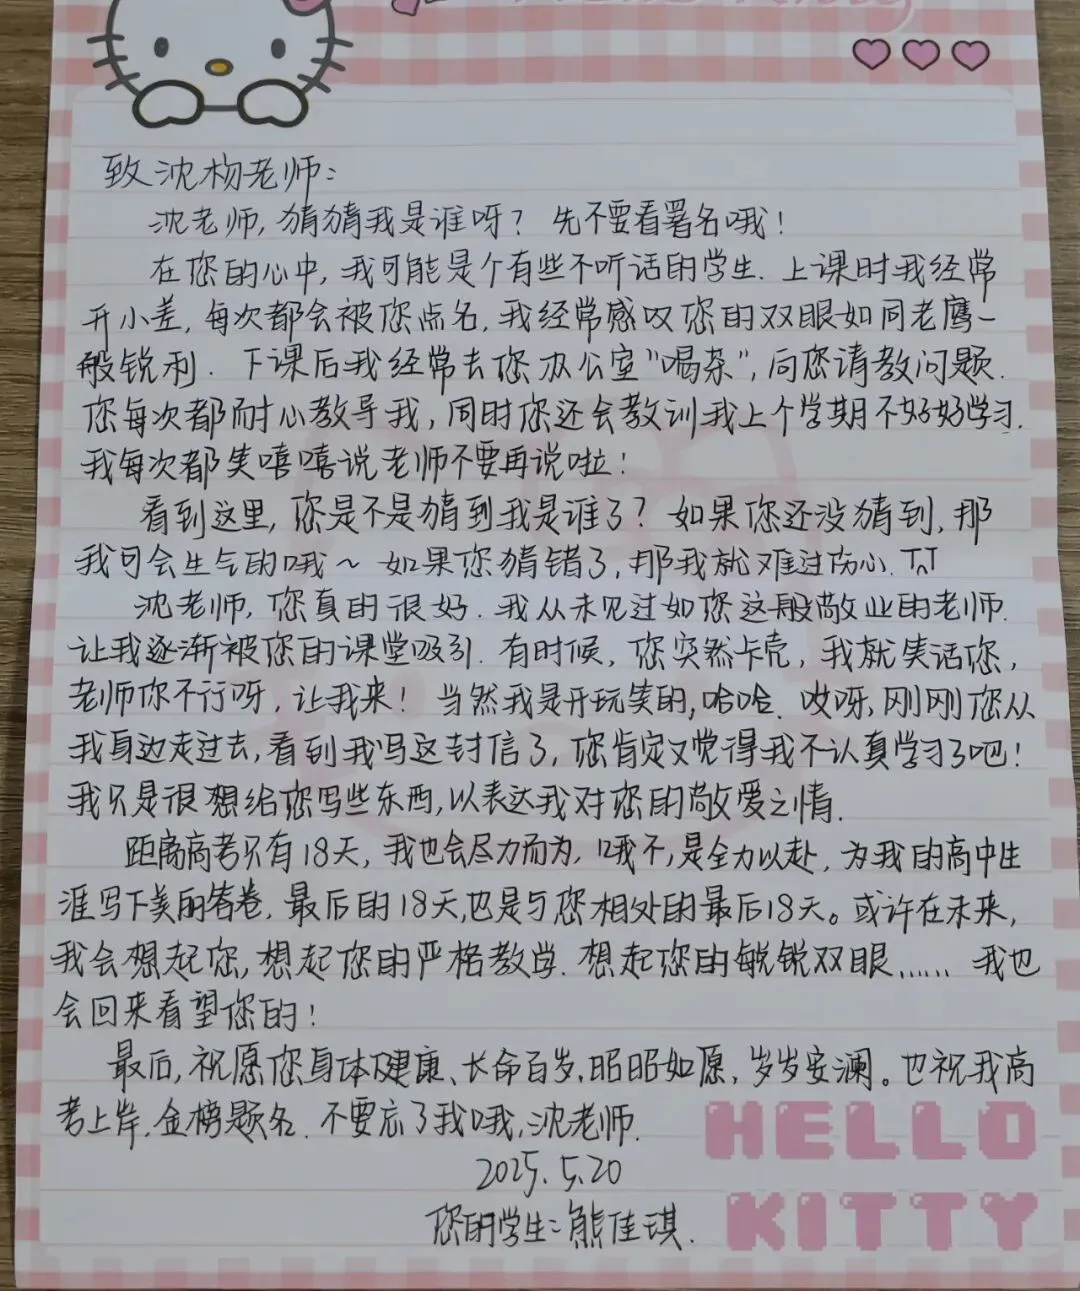 致沈杨老师:
沈老师,猜猜我是谁呀?先不要看署名哦!
在您的心中,我可能是个有些不听话的学生.上课时我经常
开小差,每次都会被您点名,我经常感叹您的双眼如同老鹰一
般锐利.下课后我经常去您办公室"喝茶",向您请教问题.
您每次都耐心教导我,同时您还会教训我上个学期不好好学习.
我每次都笑嘻嘻说老师不要再说啦!
看到这里,您是不是猜到我是谁了?如果您还没猜到,那
我可会生气的哦~如果您猜错了,那我就难过伤心.TT
沈老师,您真的很好.我从未见过如您这般敬业的老师.
让我逐渐被您的课堂吸引.有时候,您突然卡壳,我就笑话您,
老师你不行呀,让我来!当然我是开玩笑的,哈哈.哎呀,刚刚您从
我身边走过去,看到我写这封信了,您肯定又觉得我不认真学习了吧!
我只是很想给您写些东西,以表达我对您的敬爱之情.
距离高考只有18天,我也会尽力而为,哦不,是全力以赴,为我的高中生
涯写下美丽答卷,最后的18天,也是与您相处的最后18天。或许在未来,
我会想起您,想起您的严格教学.想起您的敏锐双眼……我也
会回来看望您的!
最后,祝愿您身体健康、长命百岁,昭昭如愿,岁岁安澜。也祝我高
考上岸,金榜题名.不要忘了我哦,沈老师.
2025.5.20
您的学生:熊佳琪.
HELLO
KITTY